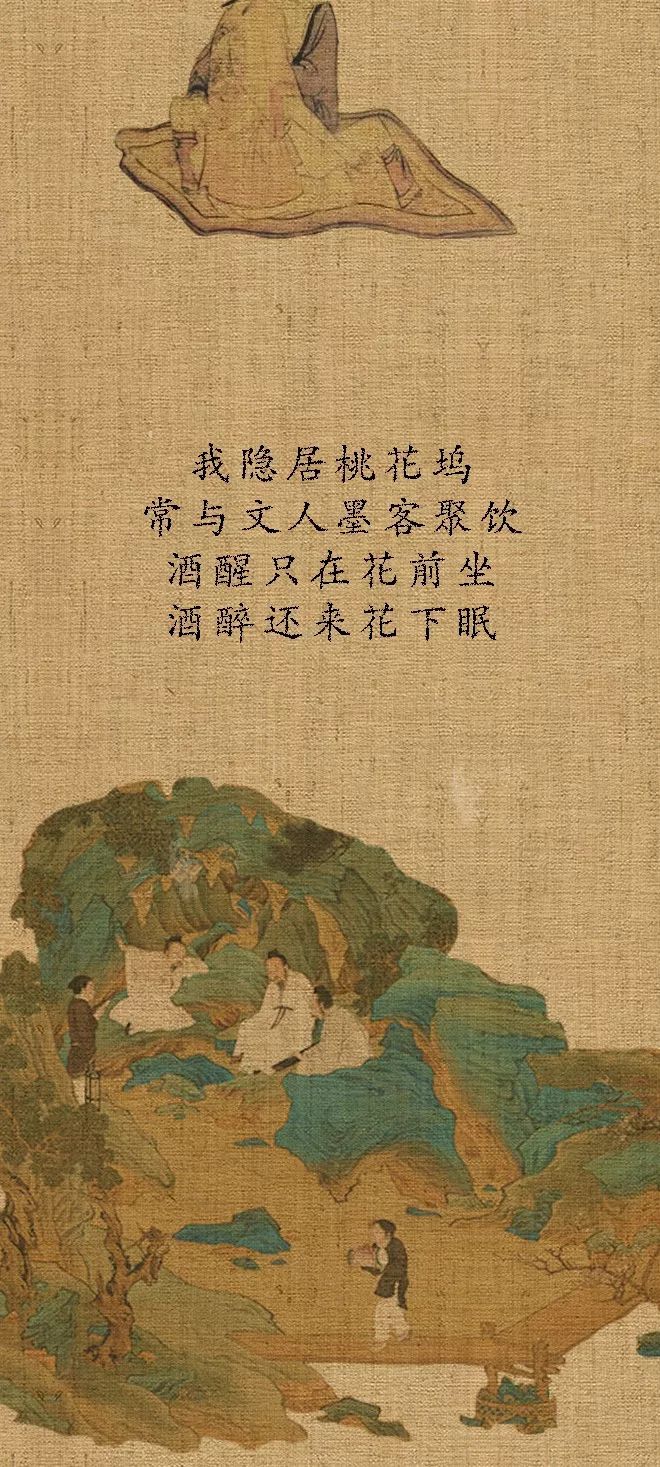 我隐居桃花坞
常与文人墨客聚饮
酒醒只在花前坐
酒醉还来花下眠